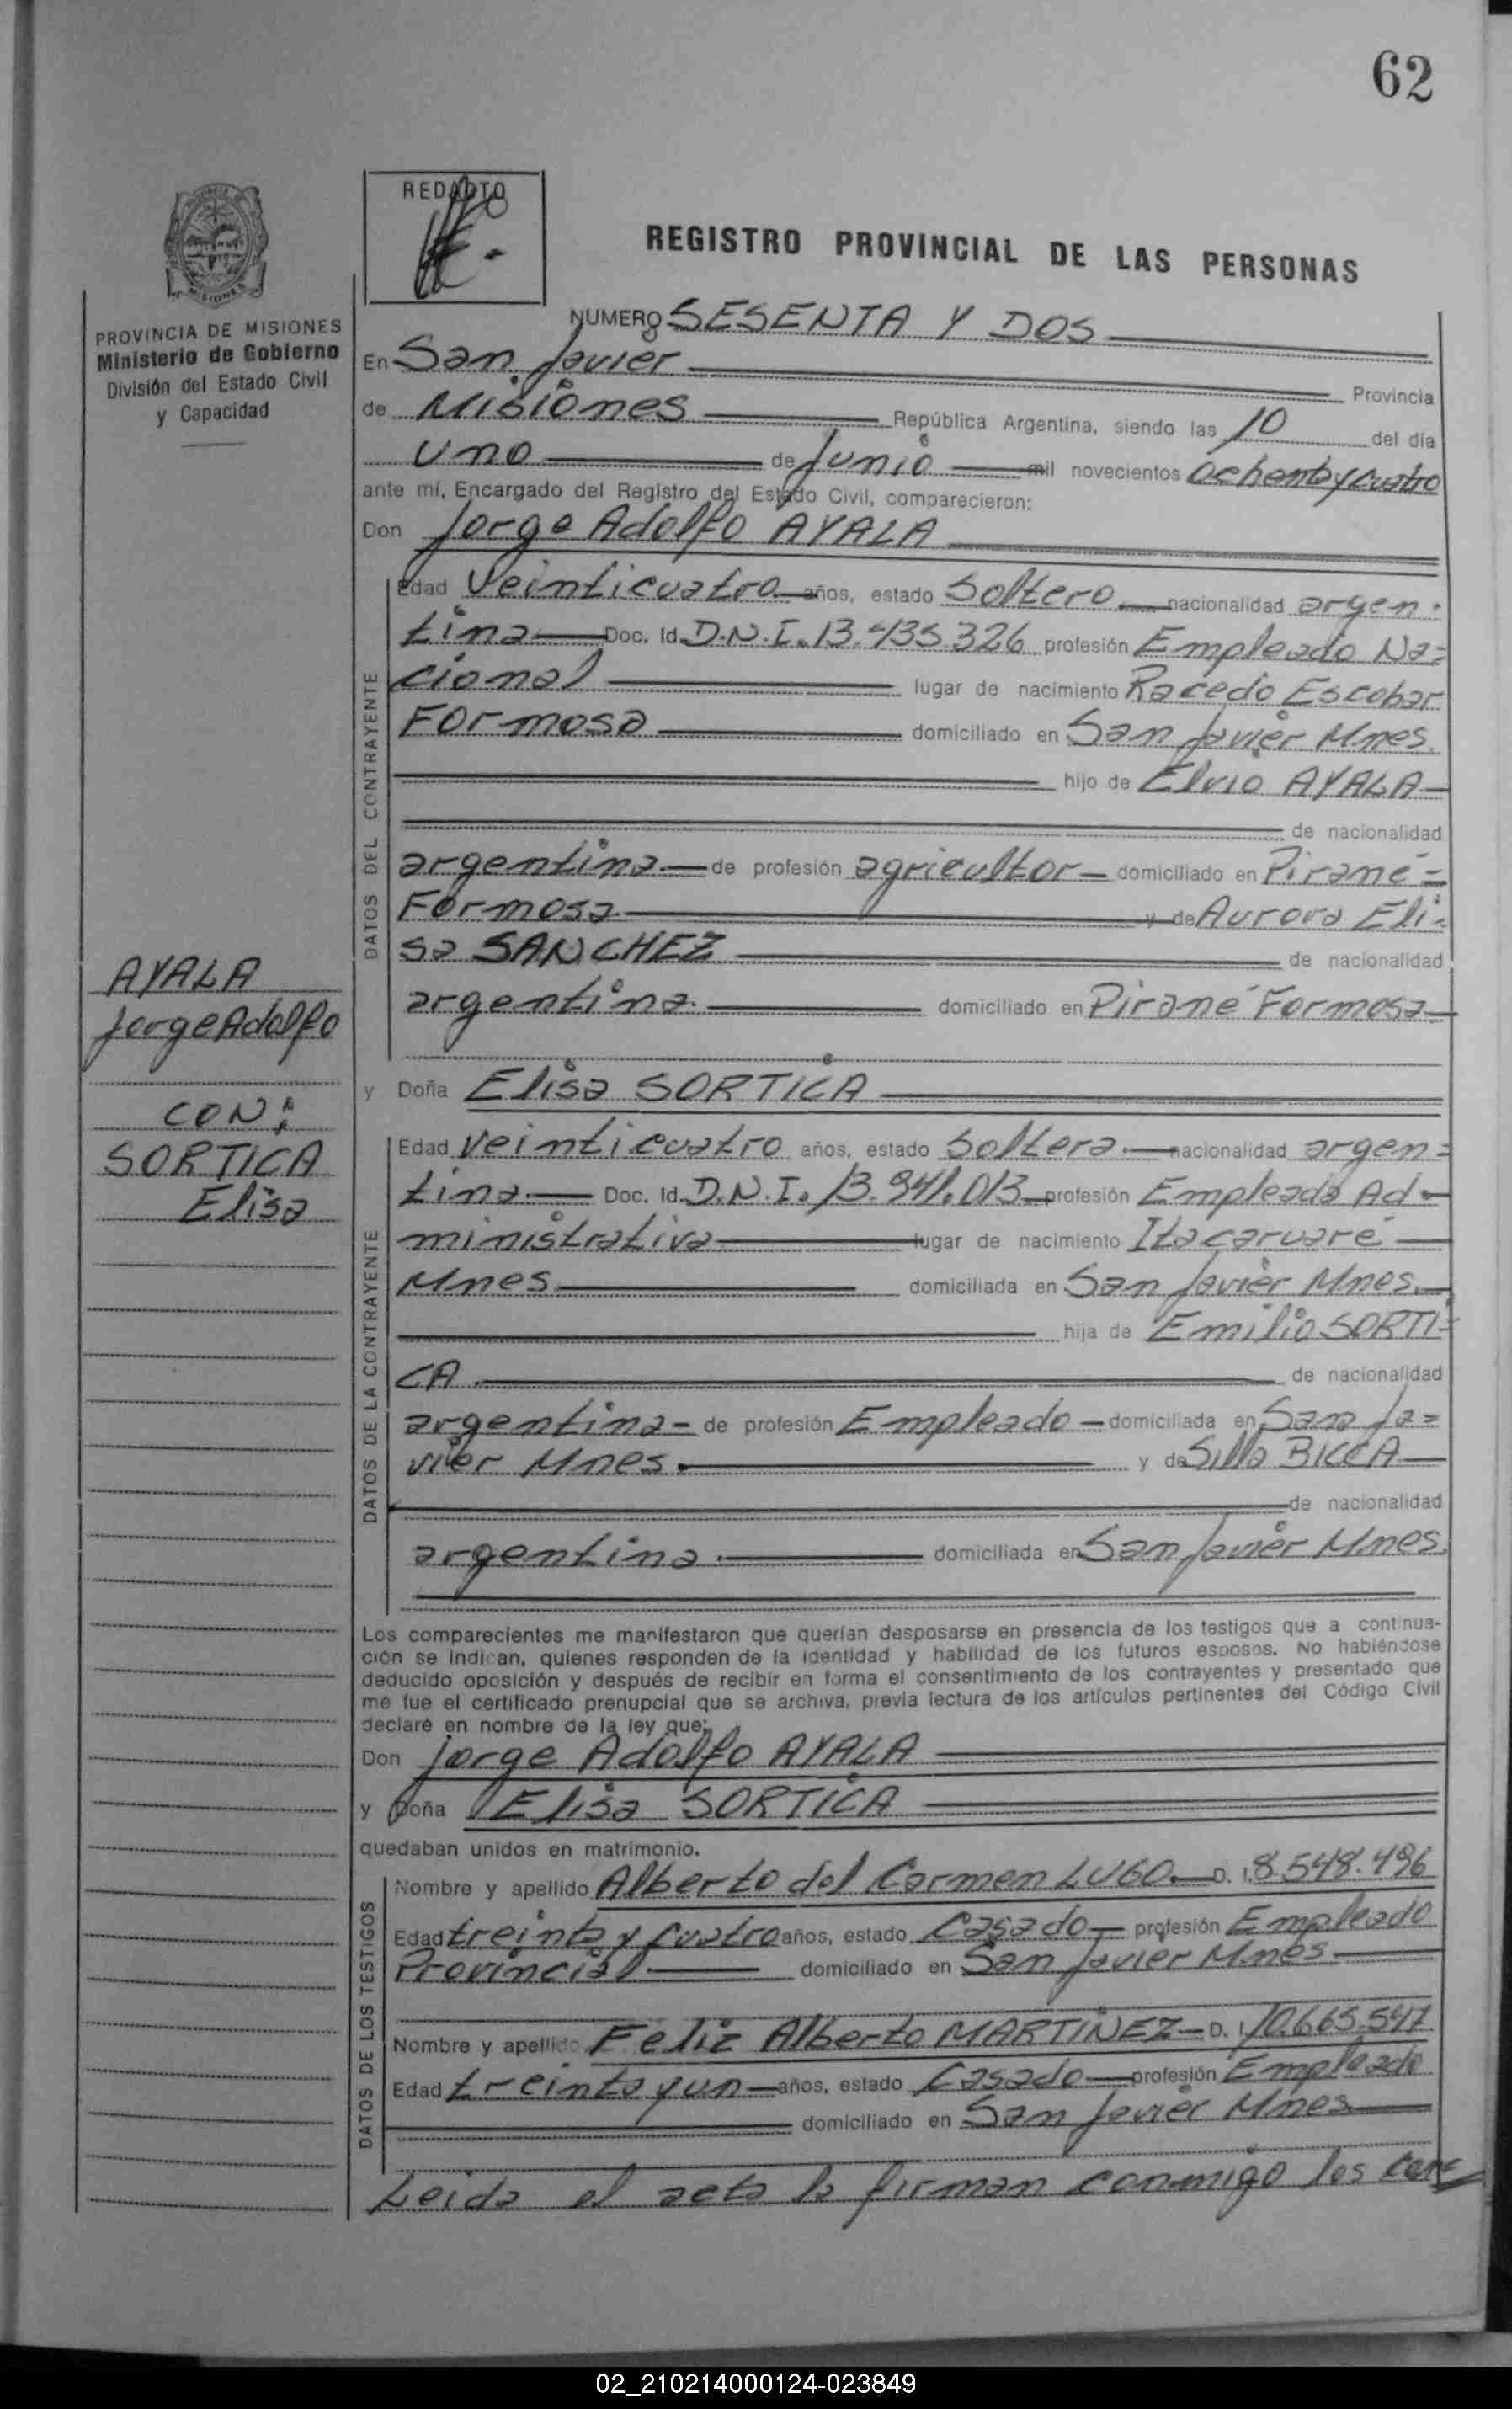 62
REDACTO
REGISTRO PROVINCIAL DE LAS PERSONAS
MISIONES
PROVINCIA DE MISIONES
Ministerio de Gobierno
División del Estado Civil
y Capacidad
NUMERO SESENTA Y DOS
En San Javier Provincia
de Misiones República Argentina, siendo las 10 del día
uno de Junio mil novecientos ochenta y cuatro
ante mí, Encargado del Registro del Estado Civil, comparecieron:
Don Jorge Adolfo AYALA
DATOS DEL CONTRAYENTE
Edad Veinticuatro años, estado Soltero nacionalidad argen-
tina Doc. Id. D.N.I. 13.435.326 profesión Empleado Na=
cional lugar de nacimiento Racedo Escobar
Formosa domiciliado en San Javier Mnes.
hijo de Elvio AYALA
de nacionalidad
argentina de profesión agricultor domiciliado en Pirané=
Formosa y de Aurora Eli=
sa SANCHEZ de nacionalidad
argentina domiciliado en Pirané Formosa
AYALA
Jorge Adolfo
CON:
SORTICA
Elisa
y Doña Elisa SORTICA
DATOS DE LA CONTRAYENTE
Edad Veinticuatro años, estado Soltera nacionalidad argen=
tina Doc. Id. D.N.I. 13.941.013 profesión Empleada Ad-
ministrativa lugar de nacimiento Itacaruaré
Mnes domiciliada en San Javier Mnes.
hija de Emilio SORTI=
CA de nacionalidad
argentina de profesión Empleado domiciliada en San Ja=
vier Mnes. y de Silla BICCA
de nacionalidad
argentina domiciliada en San Javier Mnes.
Los comparecientes me manifestaron que querían desposarse en presencia de los testigos que a continua-
ción se indican, quienes responden de la identidad y habilidad de los futuros esposos. No habiéndose
deducido oposición y después de recibir en forma el consentimiento de los contrayentes y presentado que
me fue el certificado prenupcial que se archiva, previa lectura de los artículos pertinentes del Código Civil
declaré en nombre de la ley que:
Don Jorge Adolfo AYALA
y Doña Elisa SORTICA
quedaban unidos en matrimonio.
DATOS DE LOS TESTIGOS
Nombre y apellido Alberto del Carmen LUGO D. I. 8.548.496
Edad treinta y cuatro años, estado Casado profesión Empleado
Provincial domiciliado en San Javier Mnes.
Nombre y apellido Feliz Alberto MARTINEZ D. I. 10.665.547
Edad treinta y un años, estado Casado profesión Empleado
domiciliado en San Javier Mnes
Leida el acta la firman conmigo los con=
02_210214000124-023849